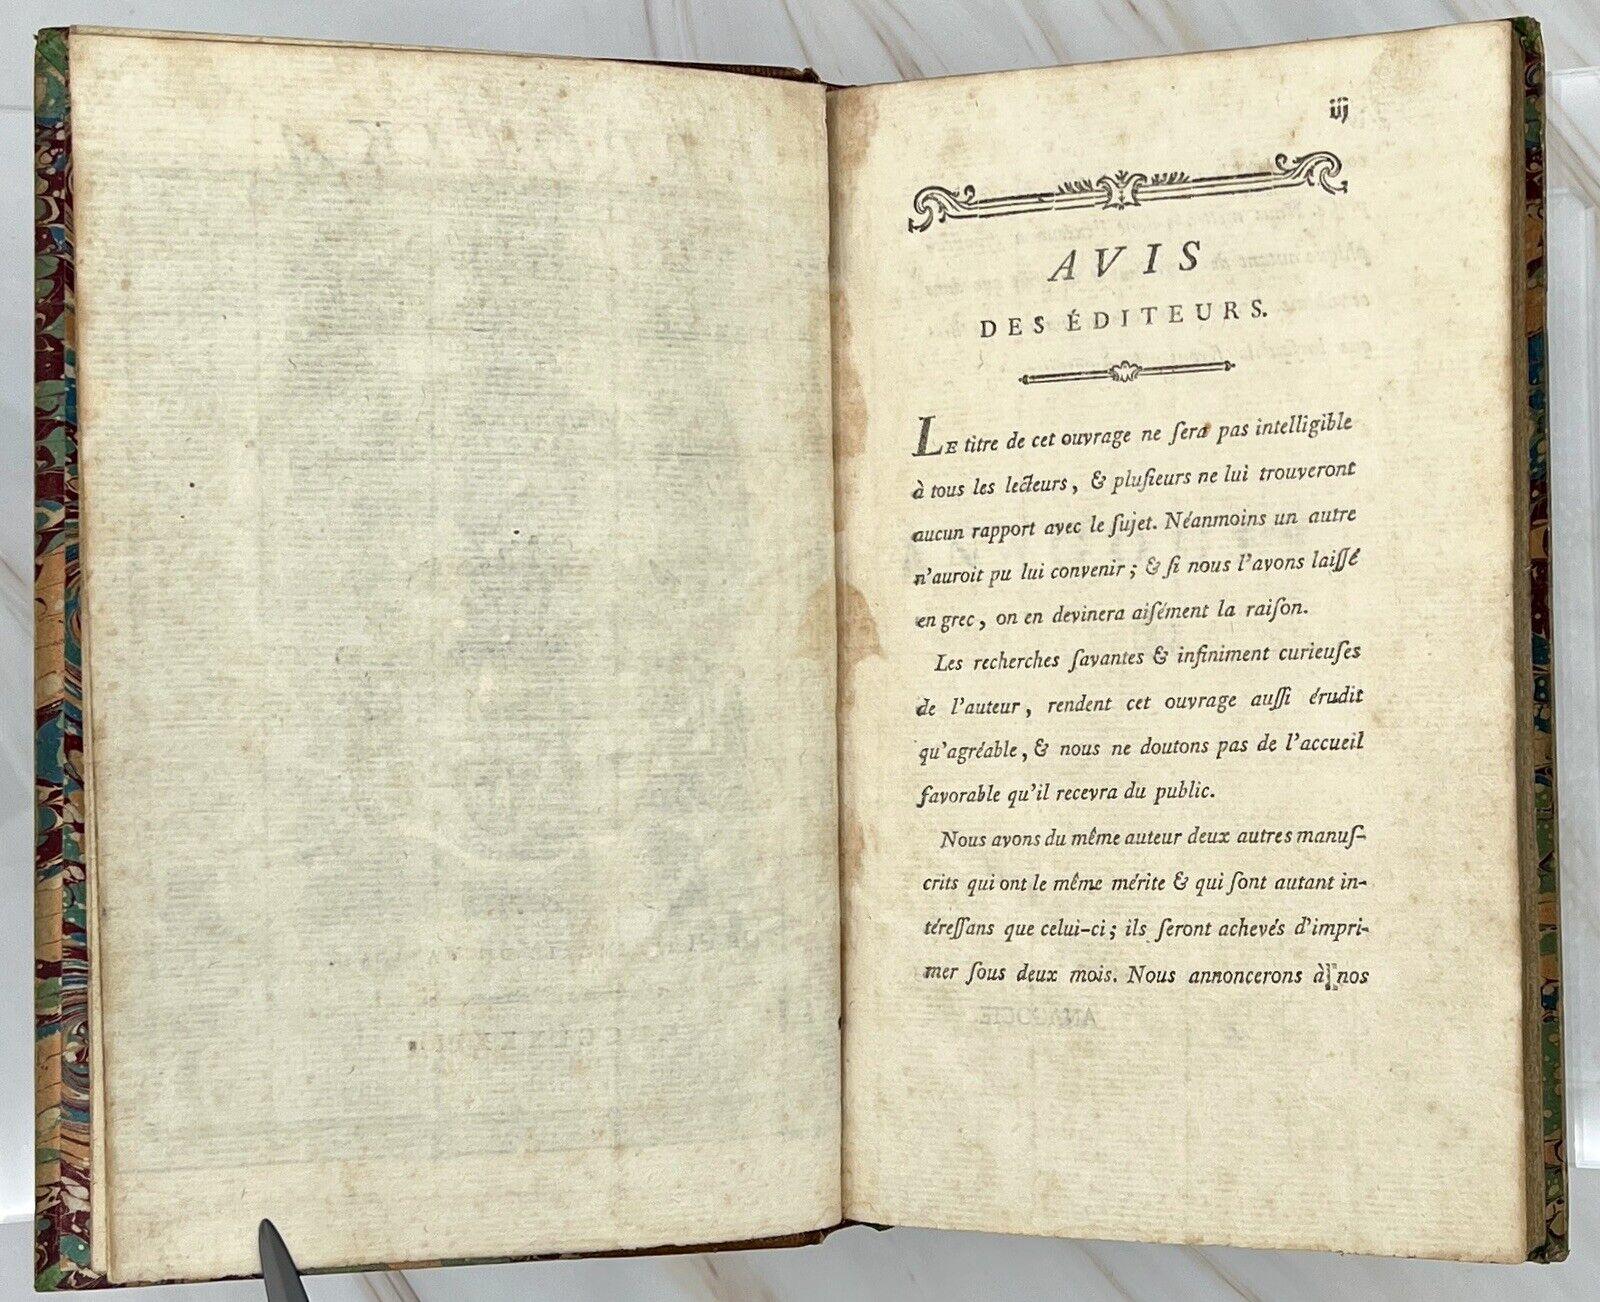 iij
AVIS
DES ÉDITEURS.
LE titre de cet ouvrage ne ſera pas intelligible
à tous les lecteurs, & pluſieurs ne lui trouveront
aucun rapport avec le ſujet. Néanmoins un autre
n'auroit pu lui convenir; & ſi nous l'avons laiſſé
en grec, on en devinera aiſément la raiſon.
Les recherches ſavantes & infiniment curieuſes
de l'auteur, rendent cet ouvrage auſſi érudit
qu'agréable, & nous ne doutons pas de l'accueil
favorable qu'il recevra du public.
Nous avons du même auteur deux autres manuſ-
crits qui ont le même mérite & qui ſont autant in-
téreſſans que celui-ci; ils ſeront achevés d'impri-
mer ſous deux mois. Nous annoncerons à nos